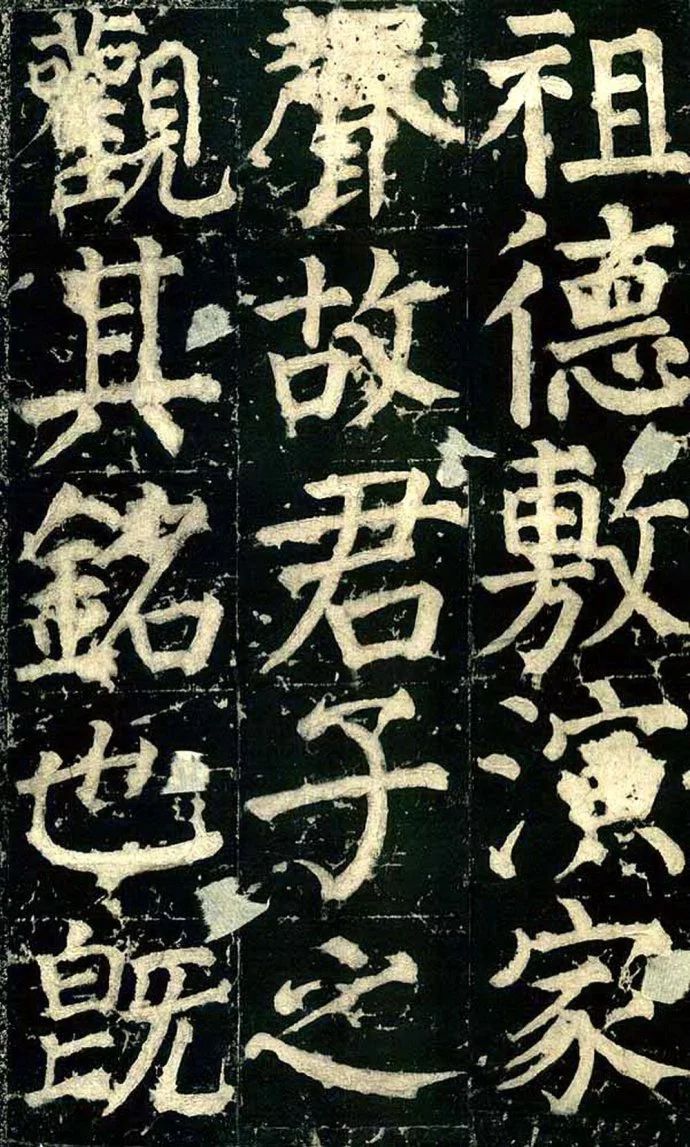 祖德敷演家
聲故君子之
觀其銘也既